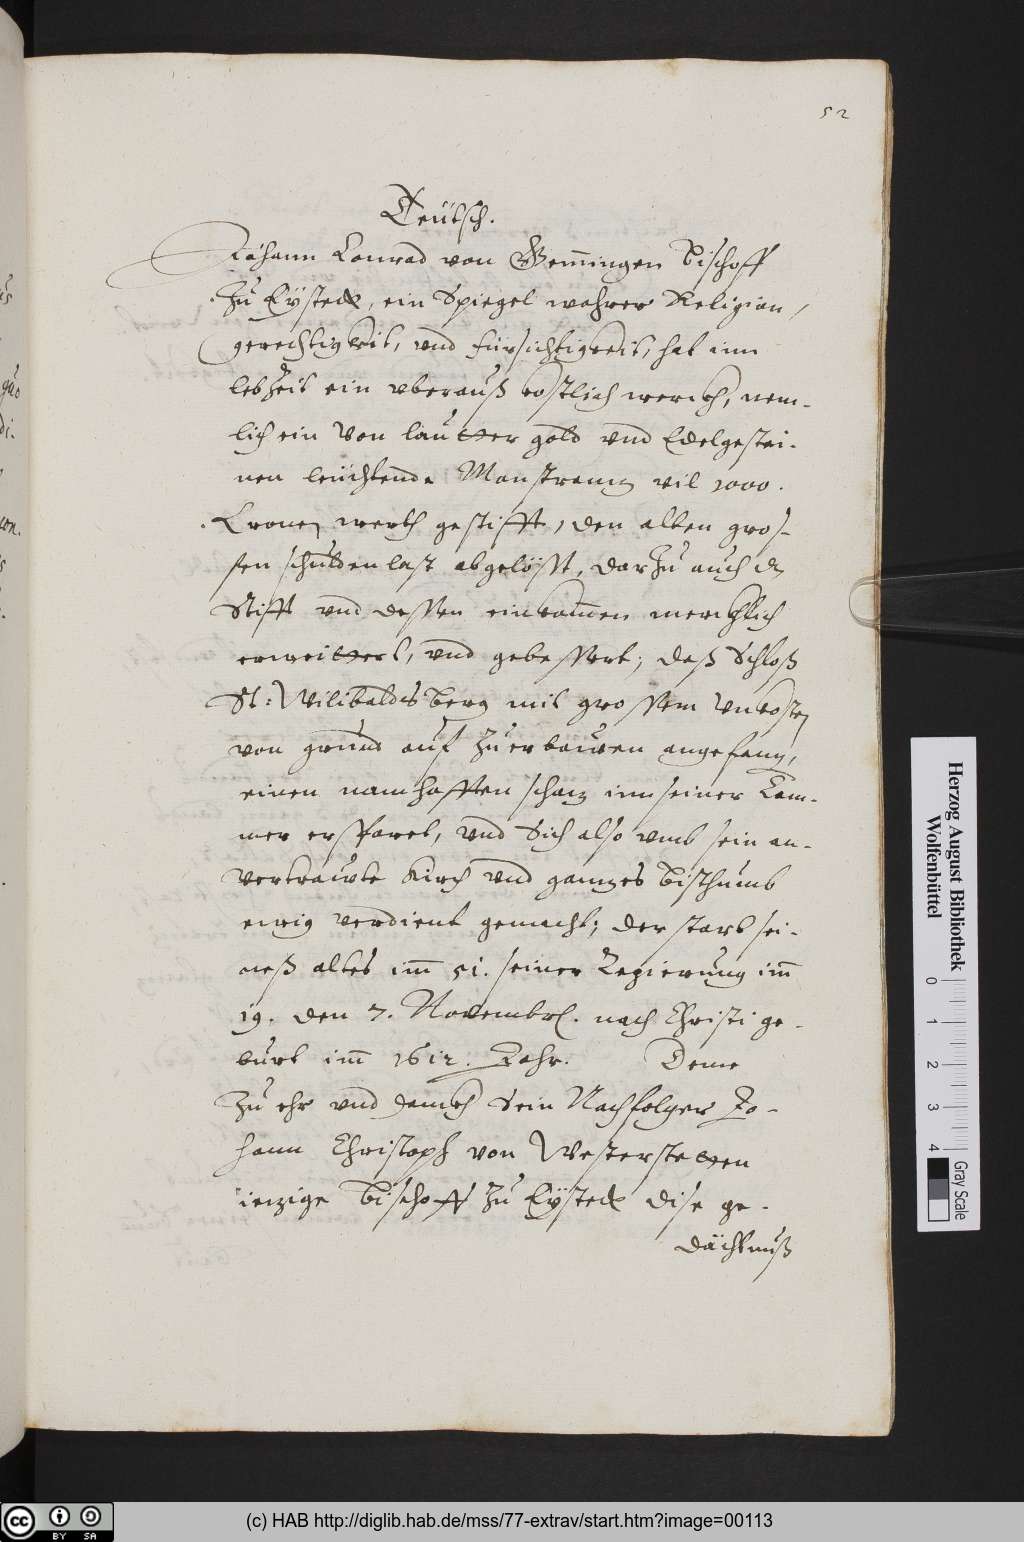 52
Teütsch.
Johann Conrad von Gem̅ingen Bischoff
Zu Eystedt, ein Spiegel wahrer Religion,
gerechtigkeit, vnd fürsichtigkeit, hat inn
lebZeit ein vberauß costlich werckh, nem-
lich ein Von lautter gold vnd Edelgestei-
nen leüchtende Monstrantz vil 1000.
Cronen werth gestifft, den alten gros-
sen schulden last abgelöst, dar Zu auch dz
Stifft vnd dessen einkom̅en merckhlich
erweittert, vnd gebessert; daß Schloß
St: Wilibaldsberg mit grossem Vncosten
von grund auf Zuerbauwen angefang,
einen namhafften schatz inn seiner Cam-
mer ersparet, vnd Sich also vmb sein an-
vertrauwte Kirch vnd gantzes Bisthumb
ewig verdient gemacht; der starb sei-
neß altes im̅ 51. seiner Regierung im̅
19. den 7. Novembr. nach Christi ge-
burt im̅ 1612. Jahr. Deme
Zu ehr vnd danckh Sein Nachfolger Jo-
hann Christoph von Westerstetten
ietzige Bischoff Zu Eystedt dise ge-
dächtnuß
Herzog August Bibliothek
Wolfenbüttel
0 1 2 3 4
Gray Scale
cc BY SA
(c) HAB http://diglib.hab.de/mss/77-extrav/start.htm?image=00113